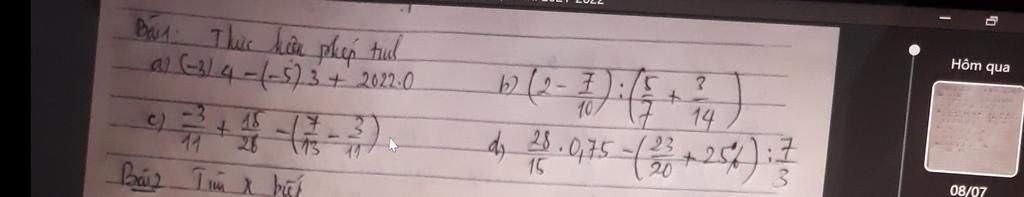 Bài 1: Thực hiện phép tính
a) (-3) 4 - (-5) 3 + 2022.0
b) (2 - 7/10) : (5/7 + 3/14)
c) -3/11 + 15/26 - (7/13 - 3/11)
d) 28/15 . 0,75 - (23/20 + 25%) : 7/3
Bài 2 Tìm x biết
Hôm qua
08/07